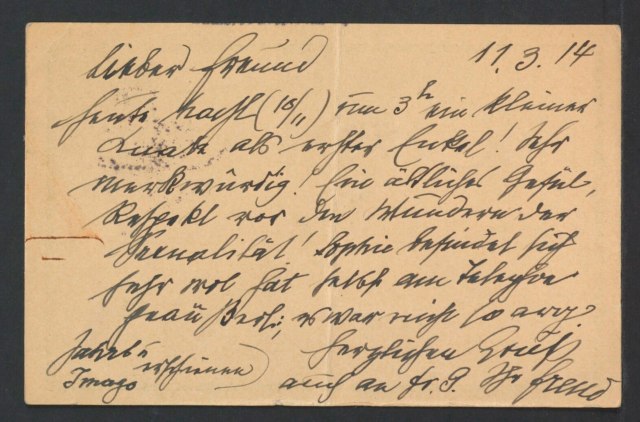 11.3.14
Lieber Freund
Heute Nacht (10/11) um 3h ein kleiner
Knabe als erster Enkel! Sehr
merkwürdig! Ein ältliches Gefül,
Respekt vor den Wundern der
Sexualität! Sophie befindet sich
sehr wol hat selbst am
es war nicht so arg.
Herzlichen Gruß
auch an Fr. G. Ihr Freud
Jahrb u
Imago erschienen)